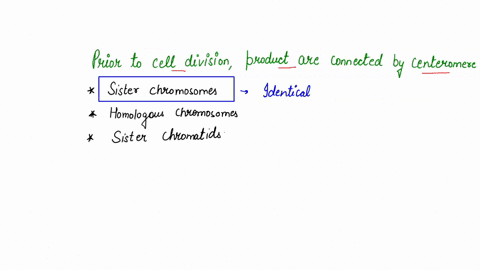 Prior to cell division, product are connected by centeromere
* Sister chromosomes → Identical
* Homologous chromosomes
* Sister chromatids